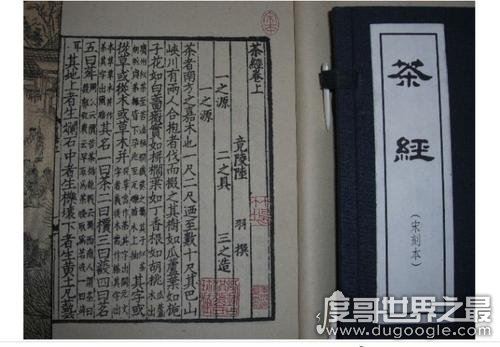 茶經卷上
竟陵陸 羽 撰
一之源 二之具 三之造
一之源
茶者南方之嘉木也一尺二尺迺至數十尺其巴山
峽川有兩人合抱者伐而掇之其樹如瓜蘆葉如梔
子花如白薔薇實如栟櫚葉如丁香根如胡桃 瓜蘆木出
廣州似茶至苦澁 其字或
從草或從木或草木并
其名一曰茶二曰檟三曰蔎四曰茗
五曰荈
耳其地上者生爛石中者生櫟壤下者生黄土凡藝
茶經
(宋刻本)
度哥世界之最
www.dugoogle.com